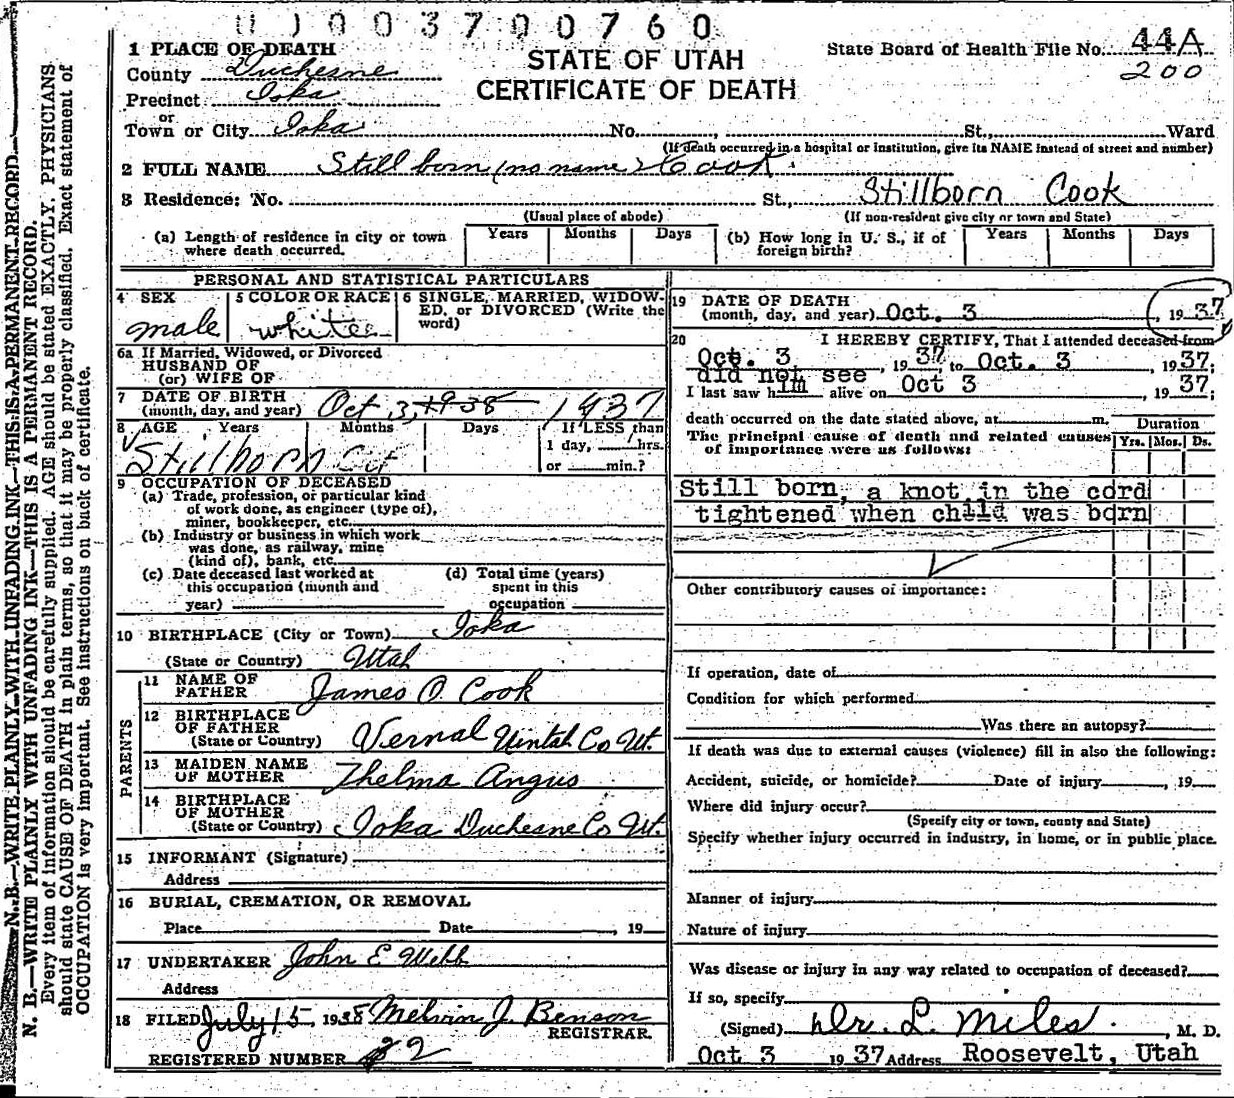 0 0 0 3 7 0 0 7 6 0
1 PLACE OF DEATH
County Duchesne
Precinct Ioka
or
Town or City Ioka No. , St., Ward
STATE OF UTAH
CERTIFICATE OF DEATH
State Board of Health File No. 44A
200
(If death occurred in a hospital or institution, give its NAME instead of street and number)
2 FULL NAME Still born (no name) Cook
3 Residence: No. St., Stillborn Cook
(Usual place of abode) (If non-resident give city or town and State)
(a) Length of residence in city or town where death occurred. Years Months Days (b) How long in U. S., if of foreign birth? Years Months Days
PERSONAL AND STATISTICAL PARTICULARS
4 SEX 5 COLOR OR RACE 6 SINGLE, MARRIED, WIDOW-
ED, or DIVORCED (Write the
word)
male white
6a If Married, Widowed, or Divorced
HUSBAND OF
(or) WIFE OF
7 DATE OF BIRTH
(month, day, and year) Oct 3, 1938 1937
8 AGE Years Months Days If LESS than
1 day, hrs.
or min.?
Stillborn
9 OCCUPATION OF DECEASED
(a) Trade, profession, or particular kind
of work done, as engineer (type of),
miner, bookkeeper, etc.
(b) Industry or business in which work
was done, as railway, mine
(kind of), bank, etc.
(c) Date deceased last worked at
this occupation (month and
year)
(d) Total time (years)
spent in this
occupation
10 BIRTHPLACE (City or Town) Ioka
(State or Country) Utah
PARENTS
11 NAME OF
FATHER James O. Cook
12 BIRTHPLACE
OF FATHER
(State or Country) Vernal Uintah Co Ut.
13 MAIDEN NAME
OF MOTHER Thelma Angus
14 BIRTHPLACE
OF MOTHER
(State or Country) Ioka Duchesne Co Ut.
15 INFORMANT (Signature)
Address
16 BURIAL, CREMATION, OR REMOVAL
Place Date , 19
17 UNDERTAKER John E Webb
Address
18 FILED July 15, 1938 Melvin J. Benson
REGISTRAR.
REGISTERED NUMBER 2
19 DATE OF DEATH
(month, day, and year) Oct. 3 , 1937
20 I HEREBY CERTIFY, That I attended deceased from
Oct. 3 , 1937, to Oct. 3 , 1937;
did not see
I last saw him alive on Oct 3 , 1937;
death occurred on the date stated above, at m.
The principal cause of death and related causes
of importance were as follows:
Duration
Yrs. Mos. Ds.
Still born, a knot in the cord
tightened when child was born
Other contributory causes of importance:
If operation, date of
Condition for which performed
Was there an autopsy?
If death was due to external causes (violence) fill in also the following:
Accident, suicide, or homicide? Date of injury , 19
Where did injury occur?
(Specify city or town, county and State)
Specify whether injury occurred in industry, in home, or in public place.
Manner of injury
Nature of injury
Was disease or injury in any way related to occupation of deceased?
If so, specify
(Signed) Dr. L. Miles , M. D.
Oct 3 1937 Address Roosevelt, Utah
N. B.—WRITE PLAINLY WITH UNFADING INK—THIS IS A PERMANENT RECORD.
N. B.—WRITE PLAINLY WITH UNFADING INK—THIS IS A PERMANENT RECORD.
Every item of information should be carefully supplied. AGE should be stated EXACTLY. PHYSICIANS
should state CAUSE OF DEATH in plain terms, so that it may be properly classified. Exact statement of
OCCUPATION is very important. See instructions on back of certificate.